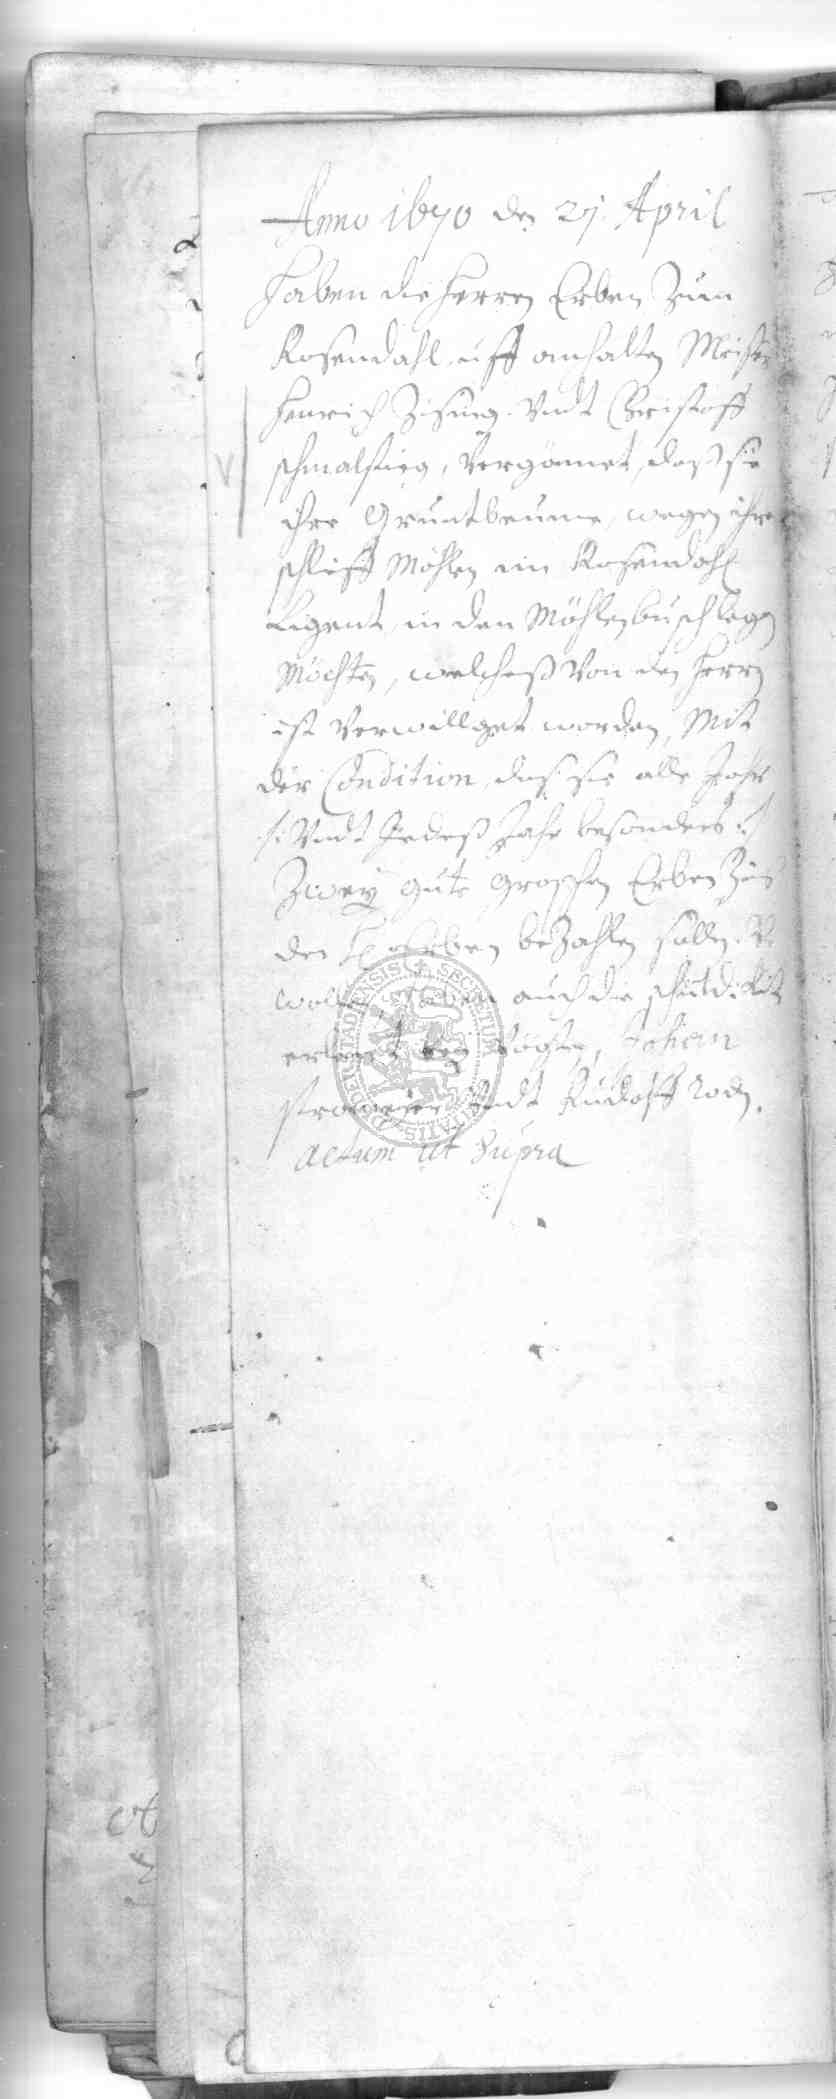 Anno 1670 den 21. April
haben die Herren Erben Zum
Rosendahl, uff anhalten Meister
Henrich Zising. Vndt Christoff
schmalstieg, Vergönnet, daß sie
ihre Gruntbeume, wegen ihrer
schleiff Möhlen im Rosendahl
Ligent, in den Möhlenbusch legen
Möchten, welcheß Von den Herrn
ist Verwilliget worden, Mit
der Condition, daß sie alle Jahr
/: Vndt Jedeß Jahr besonders :/
Zwey gute groschen Erben Zins
den Erben beZahlen sollen
wollen, haben auch die
erlegt Vögten, Johan
Vndt Rudolff
actum ut Supra
SECRETUM